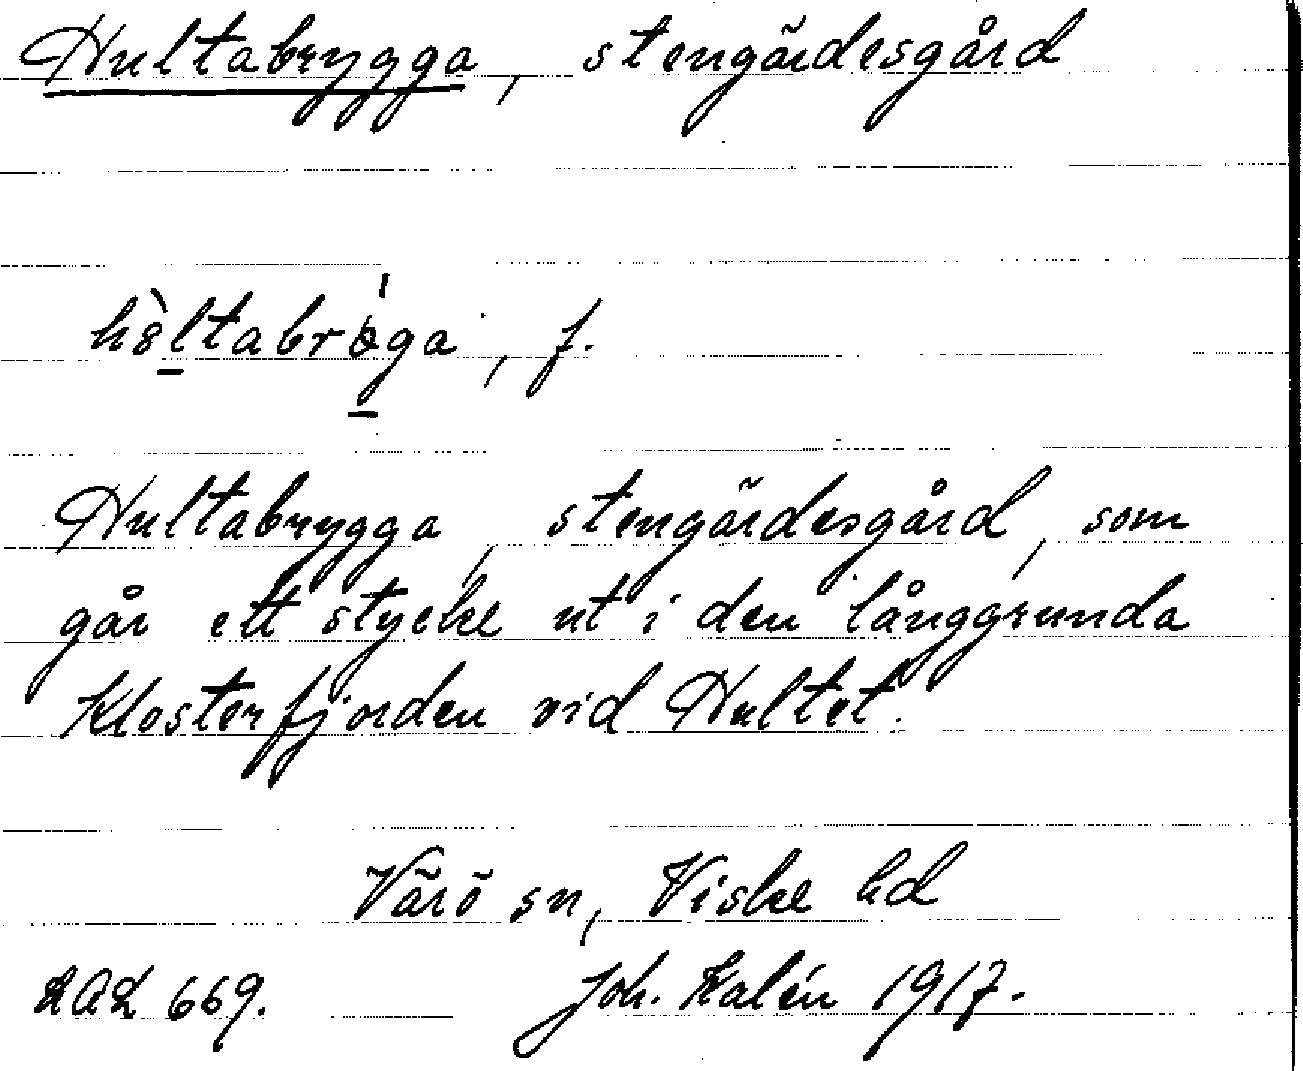 Hultabrygga, stengärdesgård
hòltabrøga, f.
Hultabrygga, stengärdesgård, som
går ett stycke ut i den långgrunda
Klosterfjorden vid Hultet.
Värö sn, Viske hd
LAL 669. Joh. Kalén 1917.